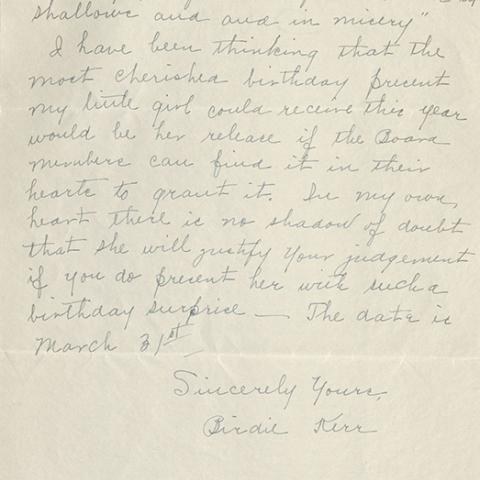 shallows and and in misery"
I have been thinking that the
most cherished birthday present
my little girl could receive this year
would be her release if the Board
members can find it in their
hearts to grant it. In my own,
heart there is no shadow of doubt
that she will justify your judgement
if you do present her with such a
birthday surprise — The date is
March 31st
Sincerely Yours,
Birdie Kerr